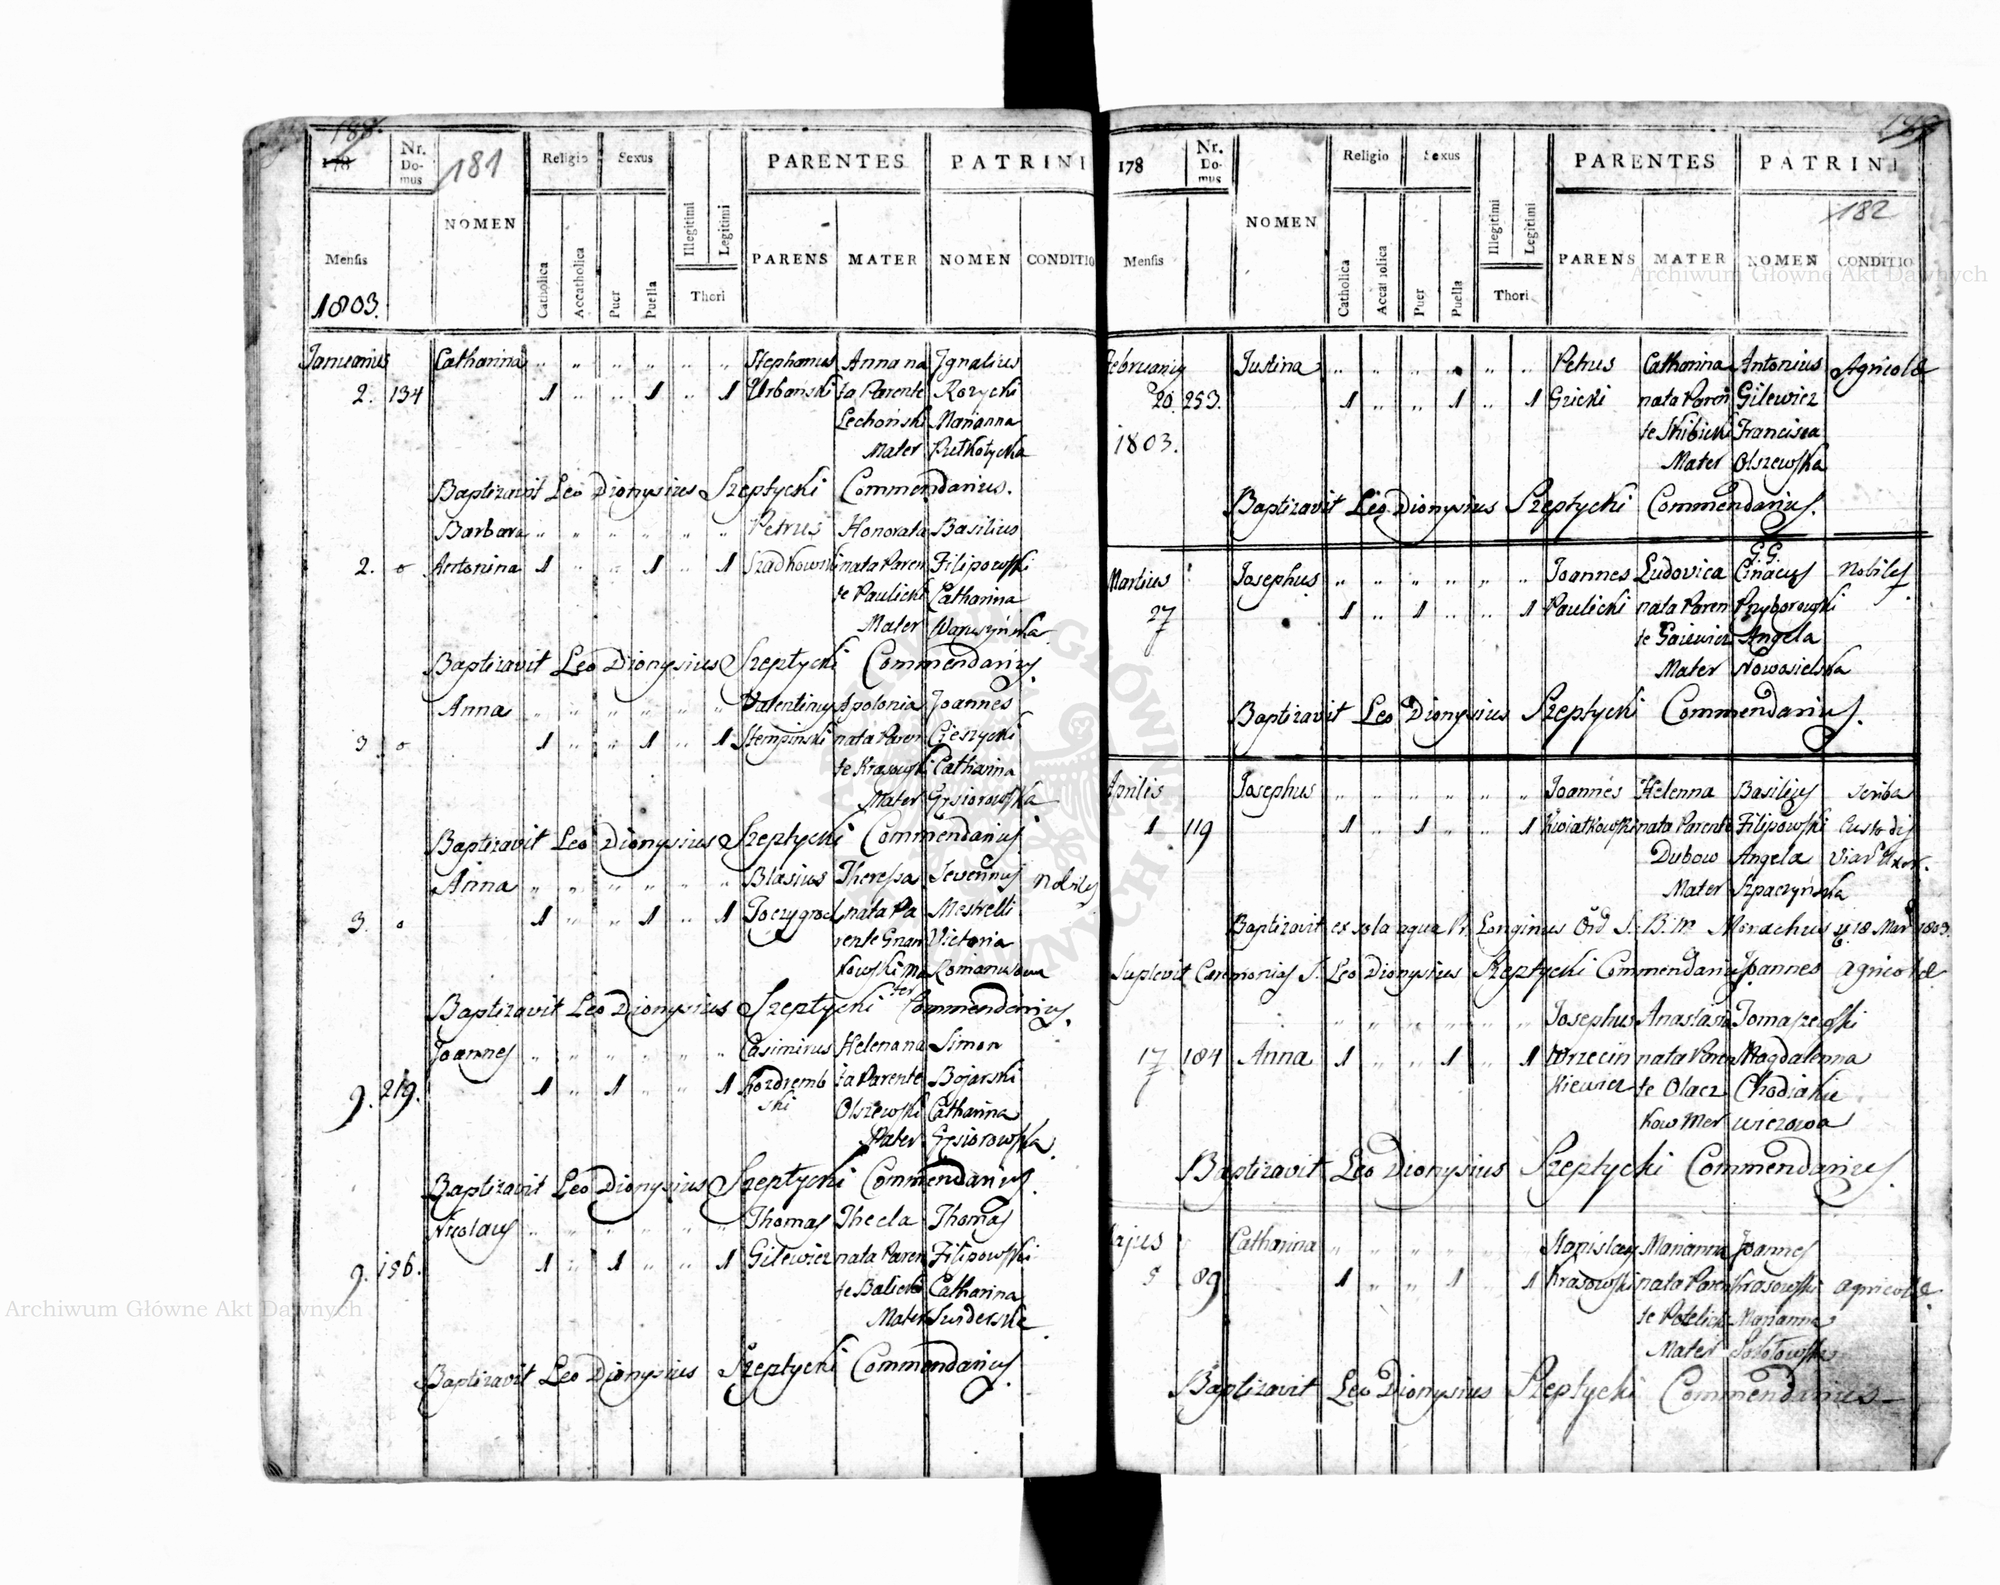 188.
178
Nr. Domus
181
NOMEN
Religio
Sexus
Illegitimi
Legitimi
PARENTES
PATRINI
Mensis
Catholica
Accatholica
Puer
Puella
Thori
PARENS
MATER
NOMEN
CONDITIO
1803.
Januarius Catharina „ „ „ „ „ „ Stephanus Anna na Ignatius
2. 134 1 „ „ 1 „ 1 Urbanski ta Parente Rozycki
Lechoński Marianna
Mater Rutkotycka
Baptizavit Leo Dionysius Szeptycki Commendarius.
Barbara „ „ „ „ „ „ Petrus Honorata Basilius
2. o Antonina 1 „ „ 1 „ 1 Szadkowski nata Paren Filipowski
te Paulicki Catharina
Mater
Baptizavit Leo Dionysius Szeptycki Commendarius.
Anna „ „ „ „ „ „ Valentinus Apolonia Joannes
3 o 1 „ „ 1 „ 1 Stempinski nata Paren Cieszycki
te Krasowski Catharina
Mater Gęsiorowska
Baptizavit Leo Dionysius Szeptycki Commendarius
Anna „ „ „ „ „ „ Blasius Theressa Severinus Nobiles
3. o 1 „ „ 1 „ 1 nata Pa Meskelli
rente Gran Victoria
kowski Ma Romanusowa
ter
Baptizavit Leo Dionysius Szeptycki Commendarius.
Joannes „ „ „ „ „ „ Casimirus Helena na Simon
9. 219. 1 „ 1 „ „ 1 Kozdremb ta Parente Bojarski
ski Olszewski Catharina
Mater Gęsiorowska
Baptizavit Leo Dionysius Szeptycki Commendarius.
Nicolaus „ „ „ „ „ „ Thomas Thecla Thomas
9. 156. 1 „ 1 „ „ 1 Gilewicz nata Paren Filipowski
te Balicki Catharina
Mater
Baptizavit Leo Dionysius Szeptycki Commendarius.
178
Nr. Domus
NOMEN
Religio
Sexus
Illegitimi
Legitimi
PARENTES
PATRINI
182
Mensis
Catholica
Accatholica
Puer
Puella
Thori
PARENS
MATER
NOMEN
CONDITIO
Februarius Justina „ „ „ „ „ „ Petrus Catharina Antonius Agricolæ
20. 253. 1 „ „ 1 „ 1 Gricki nata Paren Gilewicz
1803. te Skibicki Francisca
Mater Olszewska
Baptizavit Leo Dionysius Szeptycki Commendarius.
G.G.
Martius Josephus „ „ „ „ „ „ Joannes Ludovica Ciriacus Nobiles
27 1 „ 1 „ „ 1 Paulicki nata Paren Przyborowski
te Gaiewicz Angela
Mater Nowosielska
Baptizavit Leo Dionysius Szeptycki Commendarius.
Aprilis Josephus „ „ „ „ „ „ Joannes Helenna Basilius Scriba
1 119 1 „ 1 „ „ 1 Kwiatkowski nata Parente Filipowski Custodis
Dubow Angela Viar Uxor.
Mater Szpaczyńska
Baptizavit ex sola aqua Pr. Longinus Ord S. B. M. Monachus 18 Mar 1803.
Suplevit Caremonias S. Leo Dionysius Szeptycki Commendarius Joannes Agricolæ
„ „ „ „ „ „ Josephus Anastasia Tomaszewski
17 184 Anna 1 „ „ 1 „ 1 Wrzecin nata Paren Magdalenna
kiewicz te Olacz Chodiakie
kow Mer wiczowa
Baptizavit Leo Dionysius Szeptycki Commendarius.
Majus Catharina „ „ „ „ „ „ Stanislaus Marianna Joannes
5 89 1 „ „ 1 „ 1 Krasowski nata Paren Krasowski Agricolæ
te Potelicki Marianna
Mater Sokołowska
Baptizavit Leo Dionysius Szeptycki Commendarius
Archiwum Główne Akt Dawnych
Archiwum Główne Akt Dawnych